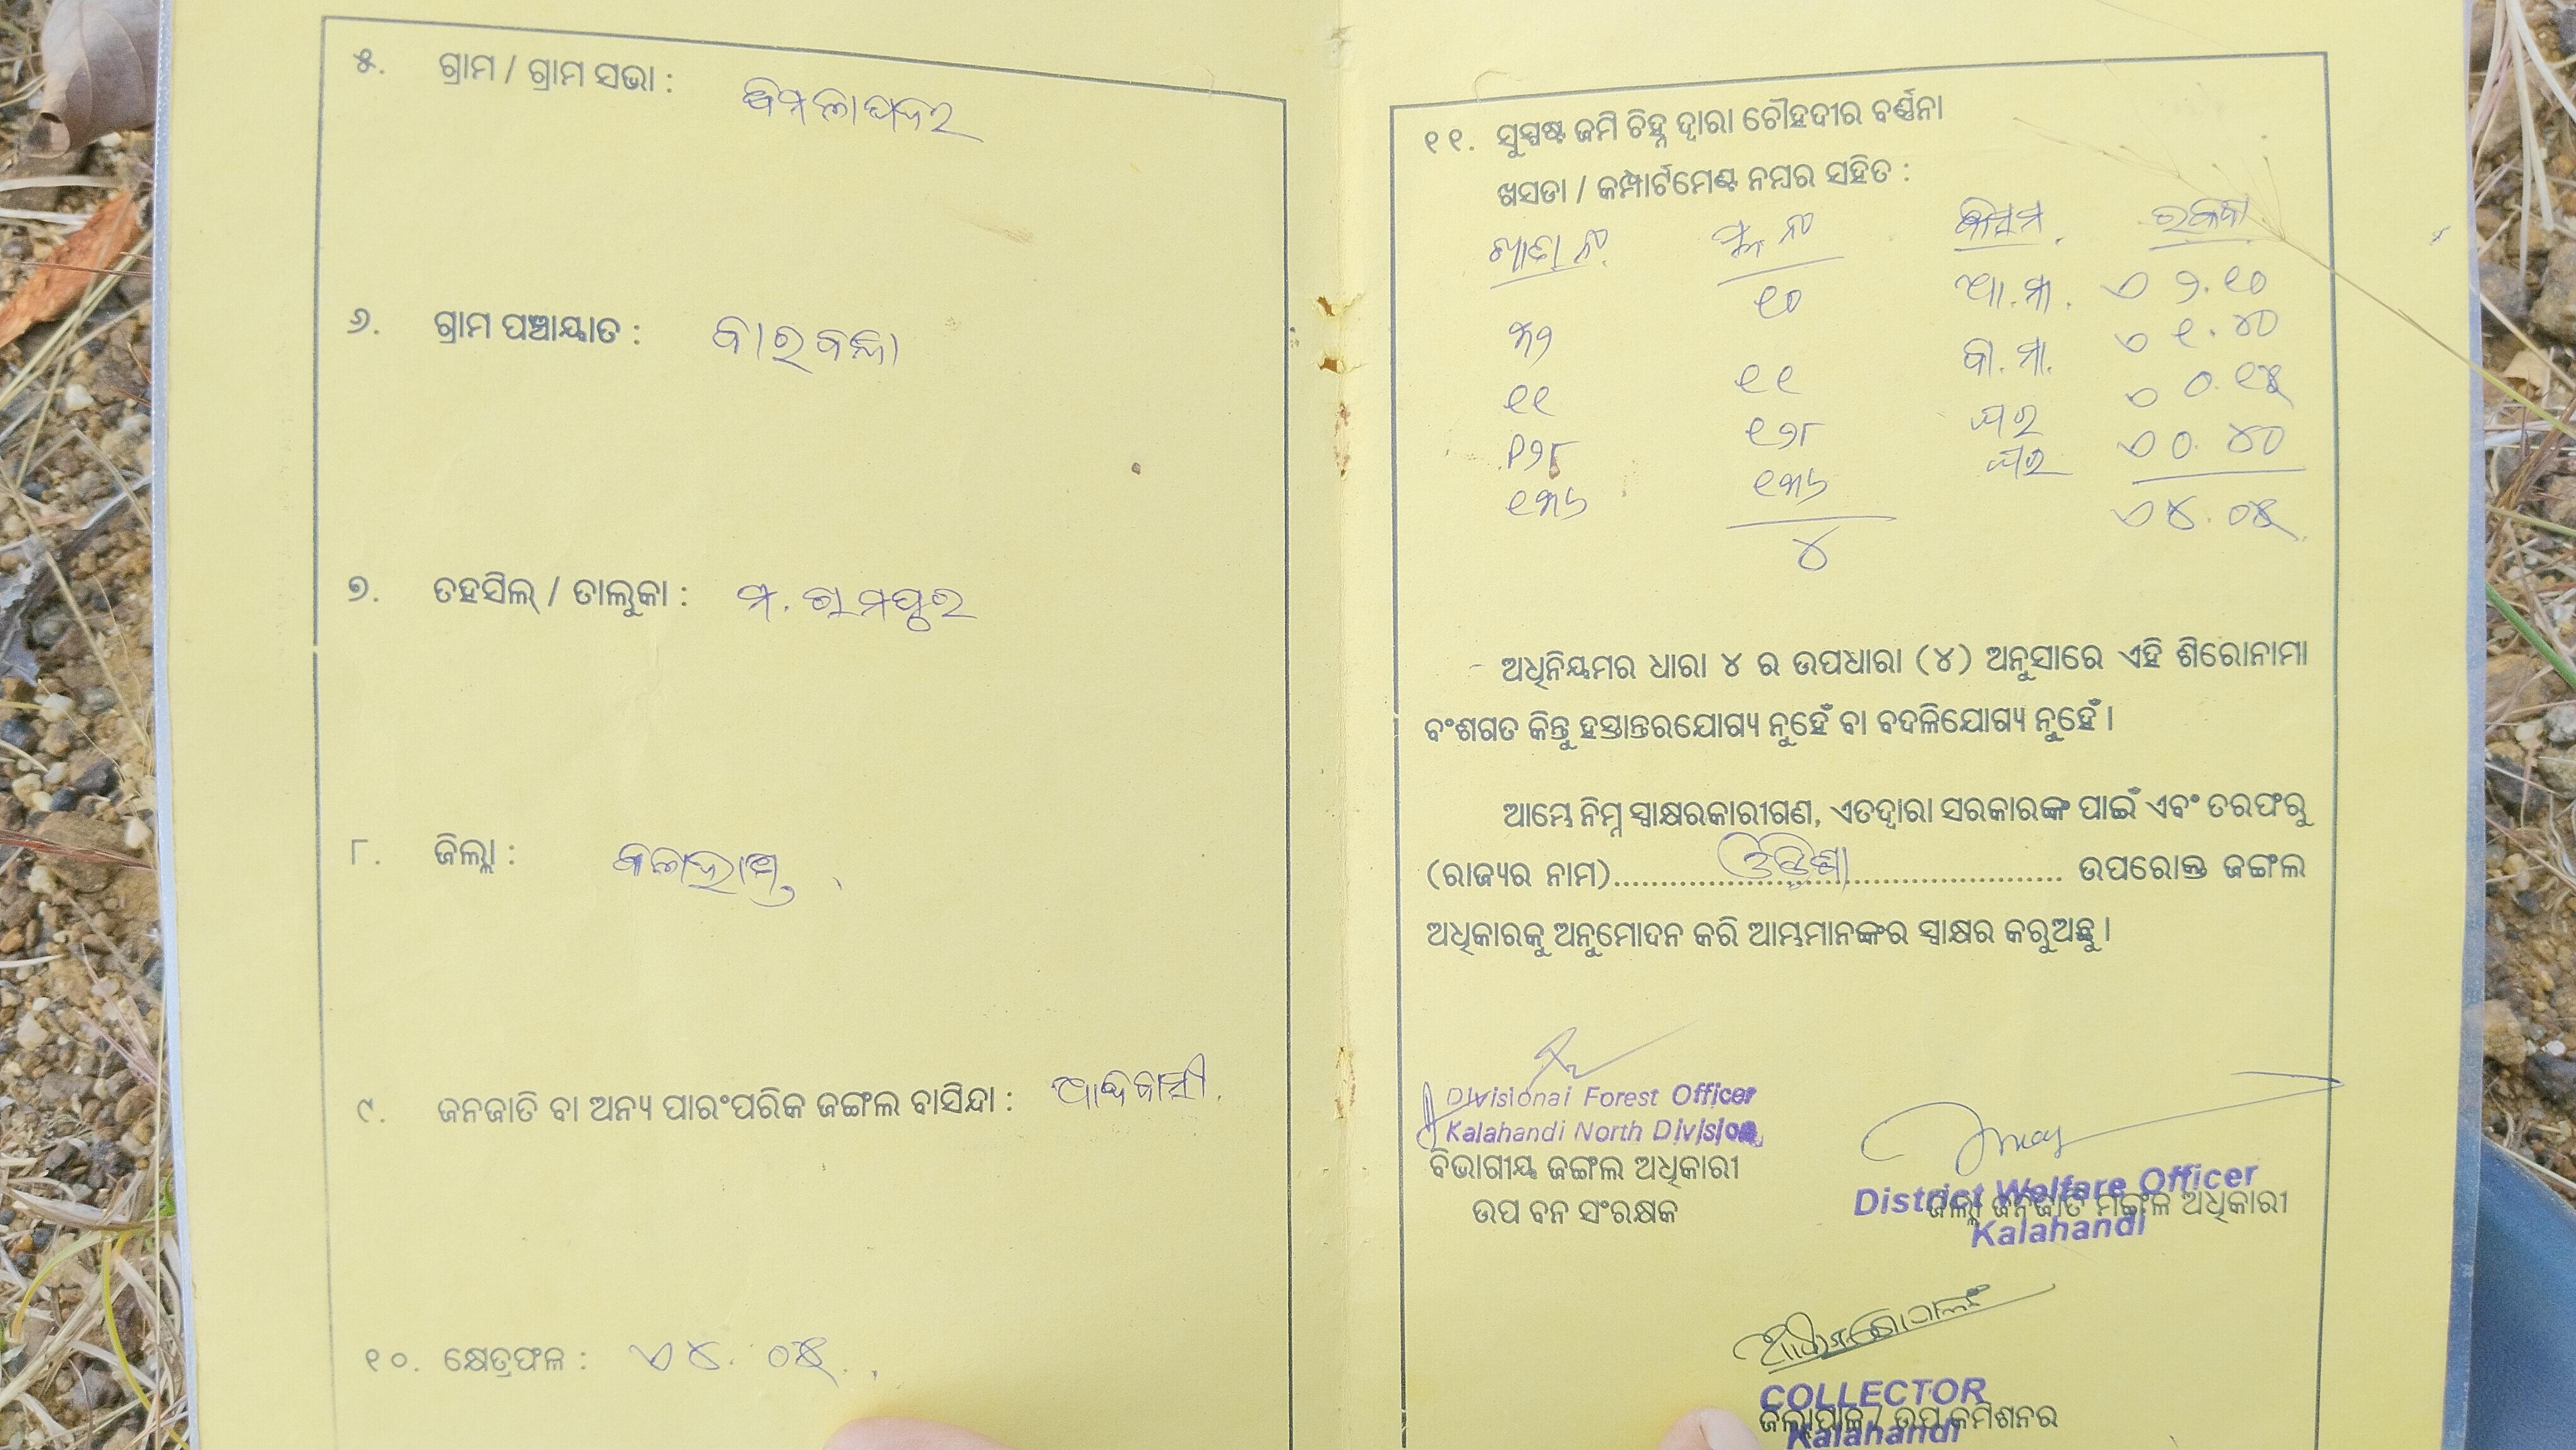 ୫. ଗ୍ରାମ / ଗ୍ରାମ ସଭା :
୬. ଗ୍ରାମ ପଞ୍ଚାୟାତ :
୭. ତହସିଲ୍ / ତାଲୁକା : ମ. ରାମପୁର
୮. ଜିଲ୍ଲା : କଳାହାଣ୍ଡି
୯. ଜନଜାତି ବା ଅନ୍ୟ ପାରଂପରିକ ଜଙ୍ଗଲ ବାସିନ୍ଦା : ଆଦିବାସୀ
୧୦. କ୍ଷେତ୍ରଫଳ : ଏ ୪.୦୫
୧୧. ସୁସ୍ପଷ୍ଟ ଜମି ଚିହ୍ନ ଦ୍ୱାରା ଚୌହଦୀର ବର୍ଣ୍ଣନା
ଖସଡା / କମ୍ପାର୍ଟମେଣ୍ଟ ନମ୍ବର ସହିତ :
ଖାତା ନଂ ପ୍ଲଟ ନଂ କିସମ ରକବା
୧୦ ଆ.ମା. ଏ ୨.୧୦
୩୨ ବା.ମା. ଏ ୧.୪୦
୧୧ ୧୧ ଘର ଏ ୦.୧୫
୧୨୮ ୧୨୮ ଘର ଏ ୦.୪୦
୧୩୬ ୧୩୬ ଏ ୪.୦୫
୪
ଅଧିନିୟମର ଧାରା ୪ ର ଉପଧାରା (୪) ଅନୁସାରେ ଏହି ଶିରୋନାମା
ବଂଶଗତ କିନ୍ତୁ ହସ୍ତାନ୍ତରଯୋଗ୍ୟ ନୁହେଁ ବା ବଦଳିଯୋଗ୍ୟ ନୁହେଁ।
ଆମ୍ଭେ ନିମ୍ନ ସ୍ୱାକ୍ଷରକାରୀଗଣ, ଏତଦ୍ୱାରା ସରକାରଙ୍କ ପାଇଁ ଏବଂ ତରଫରୁ
(ରାଜ୍ୟର ନାମ)..........ଓଡ଼ିଶା.......... ଉପରୋକ୍ତ ଜଙ୍ଗଲ
ଅଧିକାରକୁ ଅନୁମୋଦନ କରି ଆମ୍ଭମାନଙ୍କର ସ୍ୱାକ୍ଷର କରୁଅଛୁ।
Divisional Forest Officer
Kalahandi North Division
ବିଭାଗୀୟ ଜଙ୍ଗଲ ଅଧିକାରୀ
ଉପ ବନ ସଂରକ୍ଷକ
District Welfare Officer
ଜିଲ୍ଲା ଜନଜାତି ମଙ୍ଗଳ ଅଧିକାରୀ
Kalahandi
COLLECTOR
ଜିଲ୍ଲାପାଳ / ଉପ କମିଶନର
Kalahandi